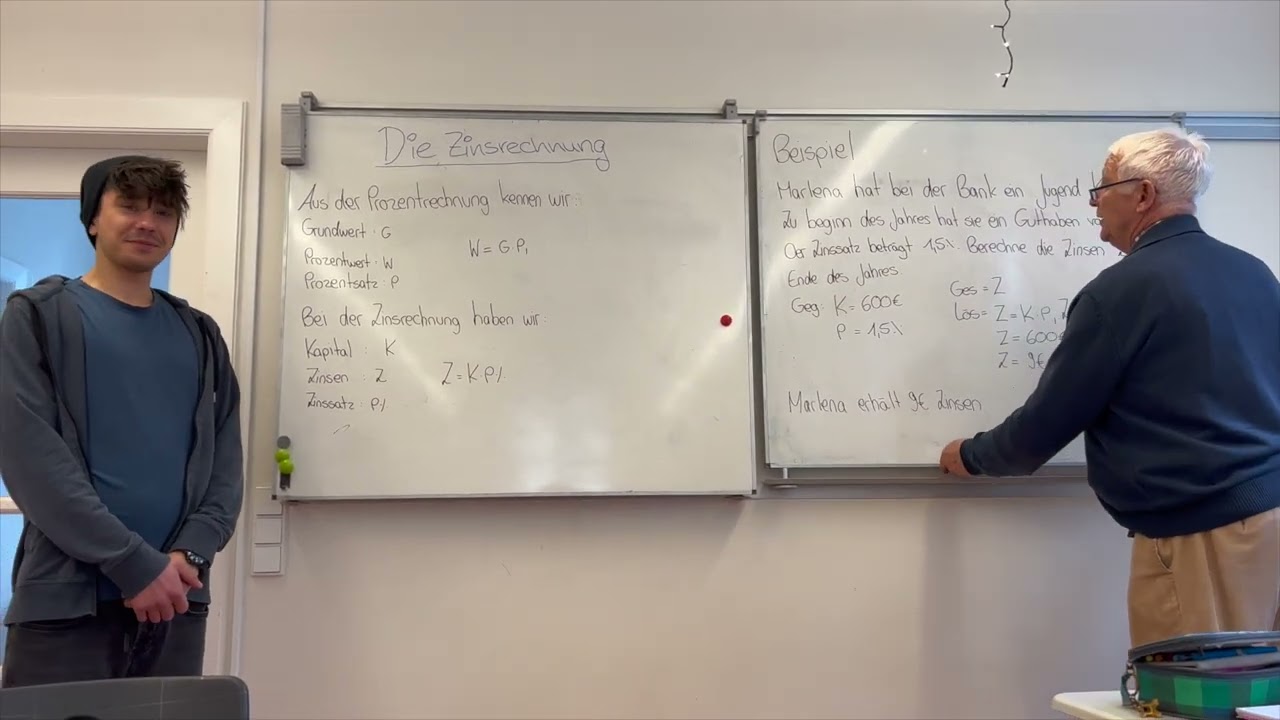 Die Zinsrechnung
Aus der Prozentrechnung kennen wir:
Grundwert : G
Prozentwert : W
W = G·P%
Prozentsatz : P
Bei der Zinsrechnung haben wir:
Kapital : K
Zinsen : Z
Z = K·P%
Zinssatz : P%
Beispiel
Marlena hat bei der Bank ein Jugend
Zu beginn des Jahres hat sie ein Guthaben
Der Zinssatz beträgt 1,5%. Berechne die Zinsen
Ende des Jahres.
Geg: K = 600€
P = 1,5%
Ges = Z
Lös = Z = K·P%
Z = 600€
Z = 9€
Marlena erhält 9€ Zinsen